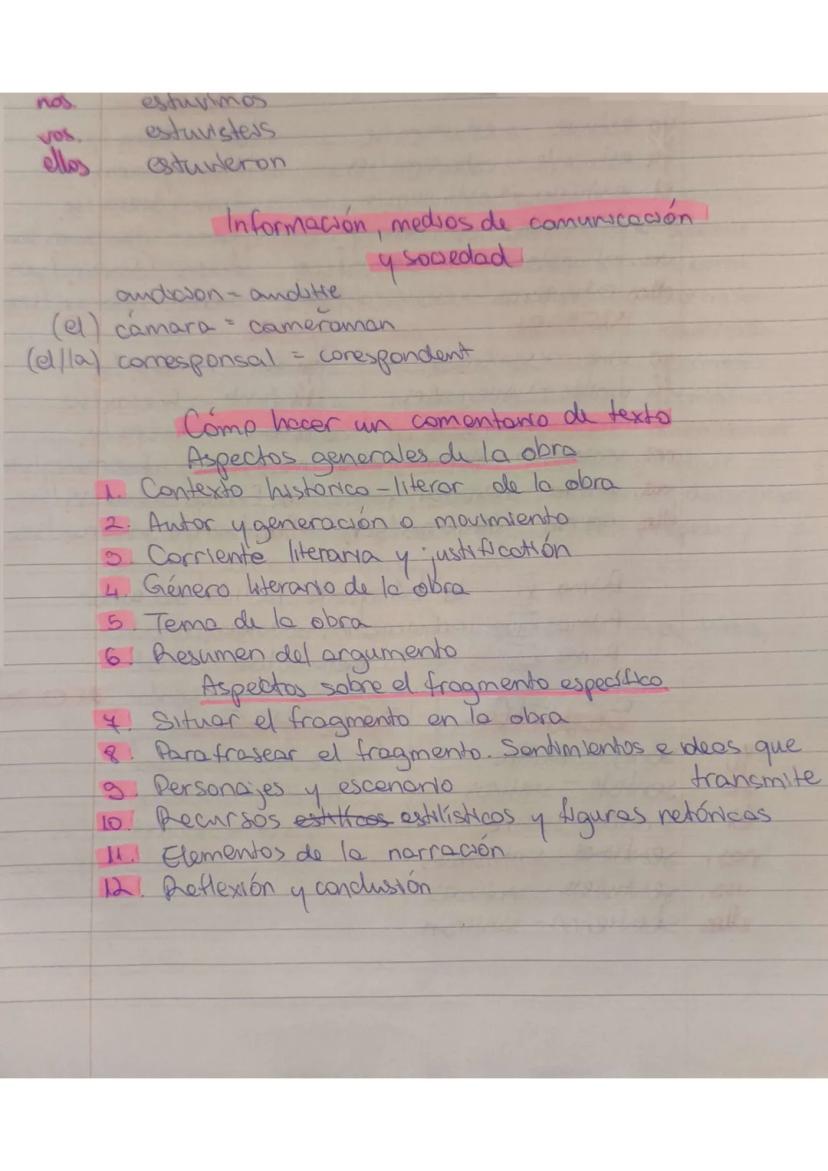 nos. estuvimos
vos. estuvisteis
ellos estuvieron
Información, medios de comunicación
y sociedad
audicion = auditie
(el) cámara = cameraman
(el/la) corresponsal = corespondent
Cómo hacer un comentario de texto
Aspectos generales de la obra
1. Contexto histórico-literar de la obra
2. Autor y generación o movimiento
3 Corriente literaria y justificación
4. Género literario de la obra
5. Tema de la obra
6. Resumen del argumento
Aspectos sobre el fragmento específico
7. Situar el fragmento en la obra
8. Parafrasear el fragmento. Sentimientos e ideas que
transmite
9. Personajes y escenario
10. Recursos estilísticos y figuras retóricas
11. Elementos de la narración
12. Reflexión y conclusión